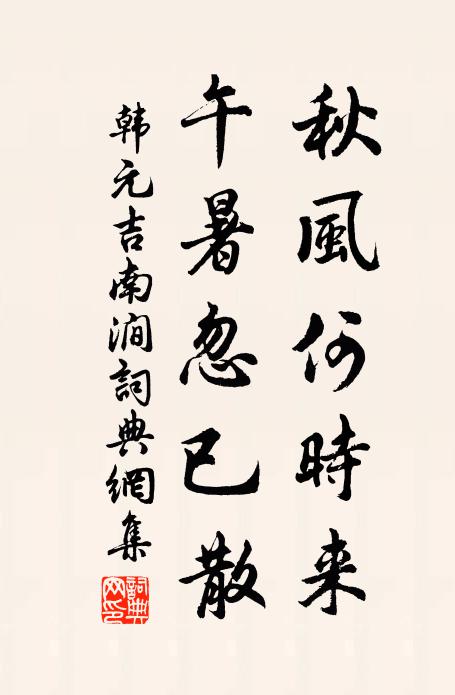 秋風何時来
午暑忽已散
韩元吉南澗詞典網集
詞典网印